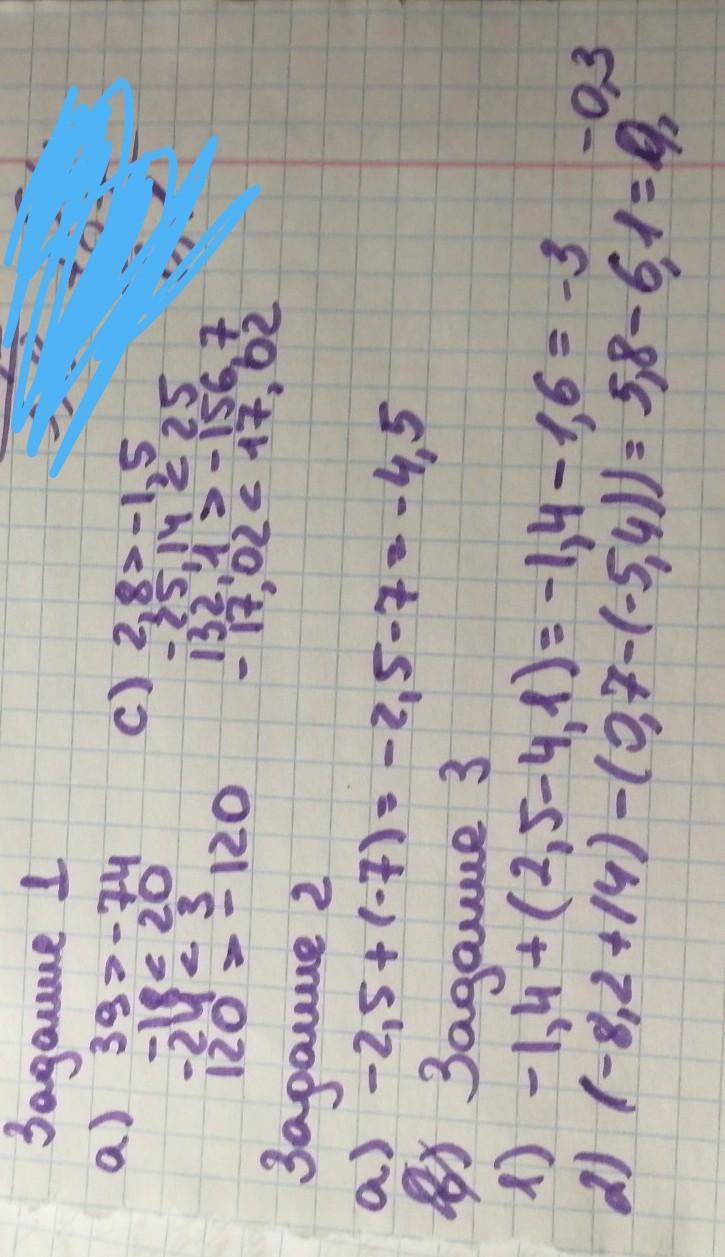 Задание 1
а) 39 > -74
-18 < 20
-24 < 3
120 > -120
с) 2,8 > -1,5
-25,14 < 25
132,1 > -156,7
-17,02 < 17,02
Задание 2
а) -2,5+(-7)= -2,5-7= -4,5
Задание 3
1) -1,4+(2,5-4,1)= -1,4-1,6= -3
2) (-8,2+14)-(0,7-(-5,4))= 5,8-6,1= -0,3